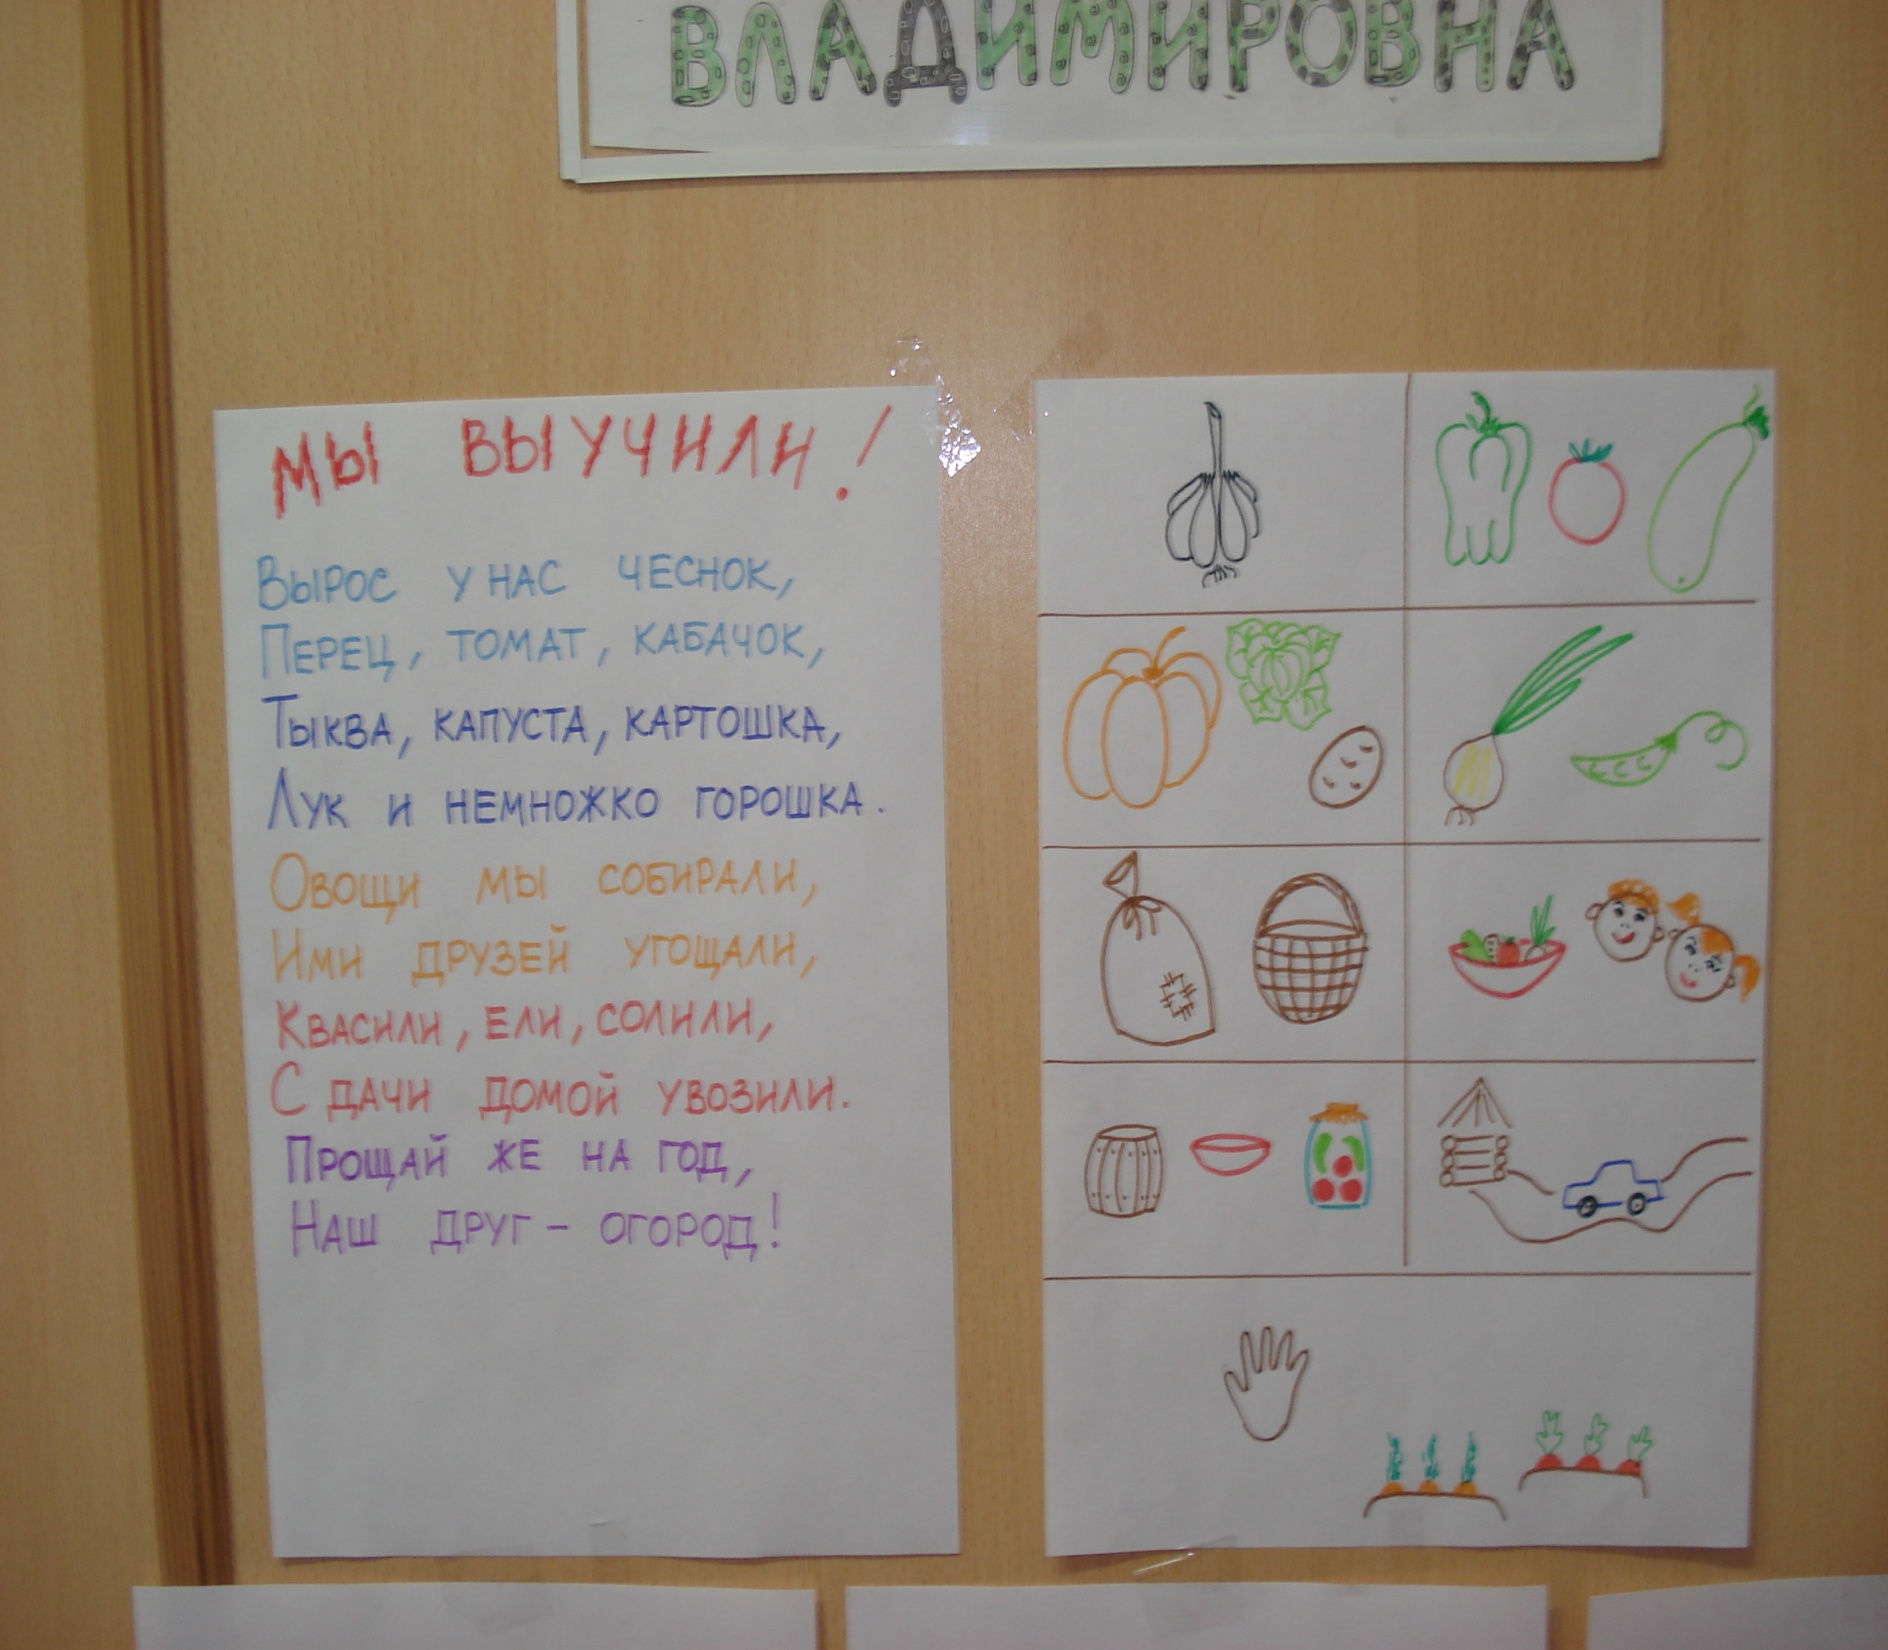 ВЛАДИМИРОВНА
МЫ ВЫУЧИЛИ!
Вырос у нас чеснок,
Перец, томат, кабачок,
Тыква, капуста, картошка,
Лук и немножко горошка.
Овощи мы собирали,
Ими друзей угощали,
Квасили, ели, солили,
С дачи домой увозили.
Прощай же на год,
Наш друг – огород!